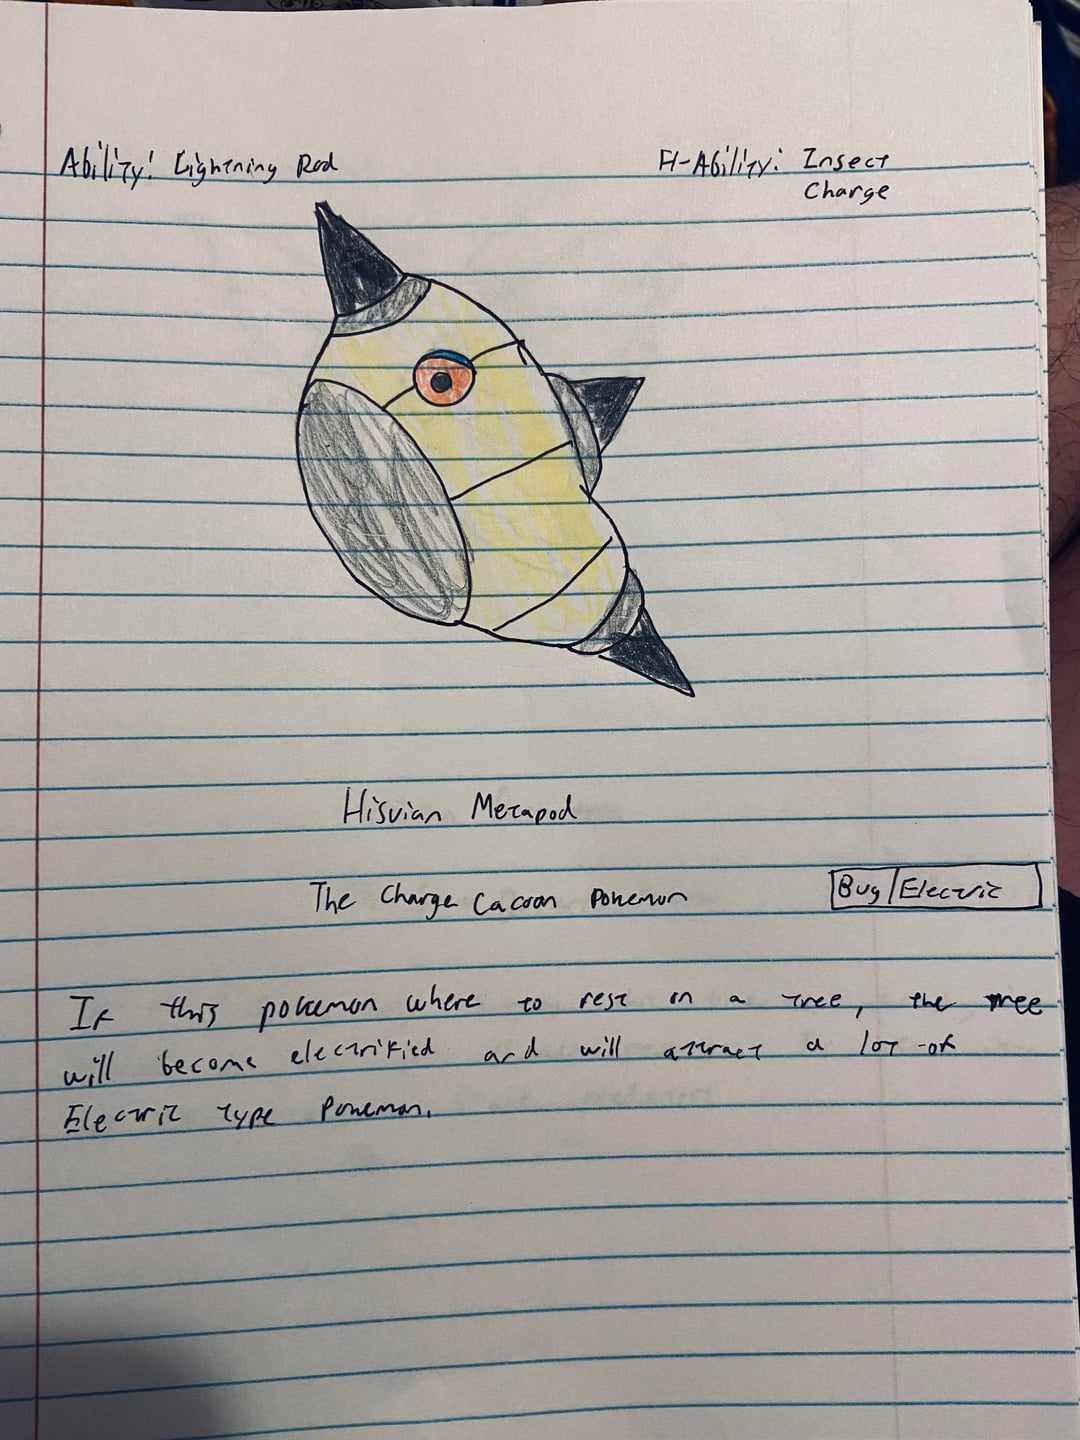 Ability: Lightning Rod
H-Ability: Insect
Charge
Hisuian Metapod
The Charge Cacoon Pokemon
Bug/Electric
If this pokemon where to rest on a tree, the tree
will become electrified and will attract a lot of
Electric type Pokemon.